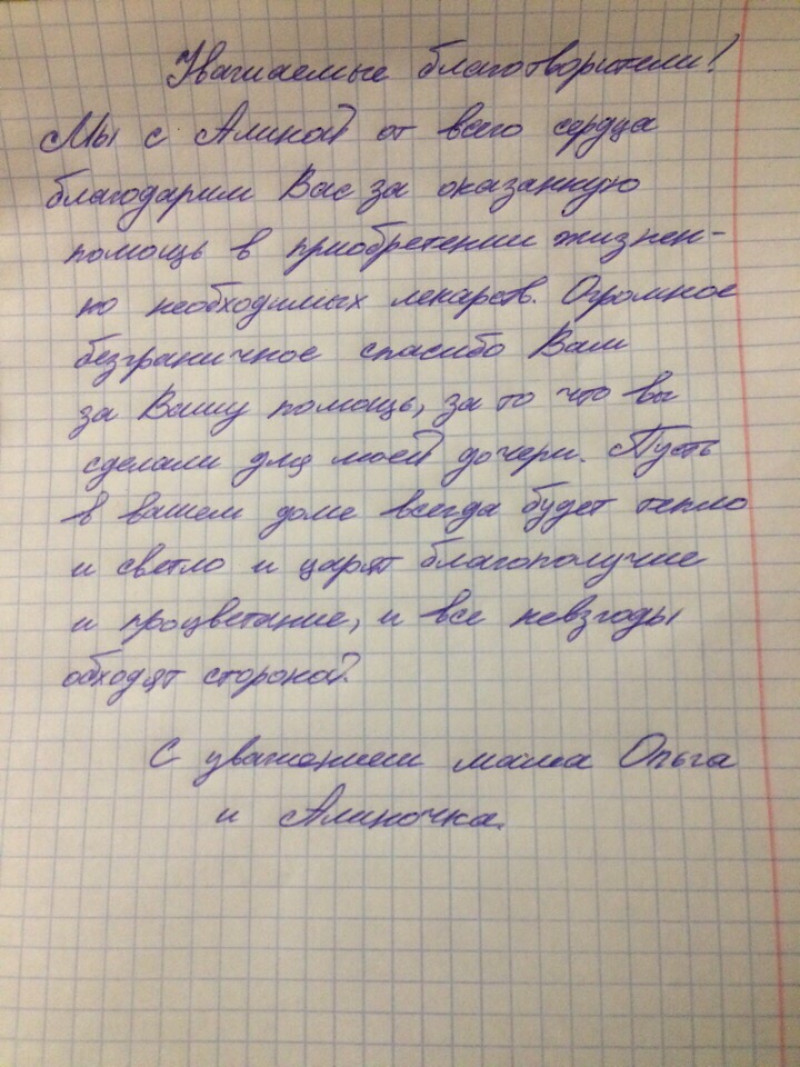 Уважаемые благотворители!
Мы с Алиной от всего сердца
благодарим Вас за оказанную
помощь в приобретении жизнен-
но необходимых лекарств. Огромное
безграничное спасибо Вам
за Вашу помощь, за то что вы
сделали для моей дочери. Пусть
в вашем доме всегда будет тепло
и светло и царят благополучие
и процветание, и все невзгоды
обходят стороной.
С уважением мама Ольга
и Алиночка.